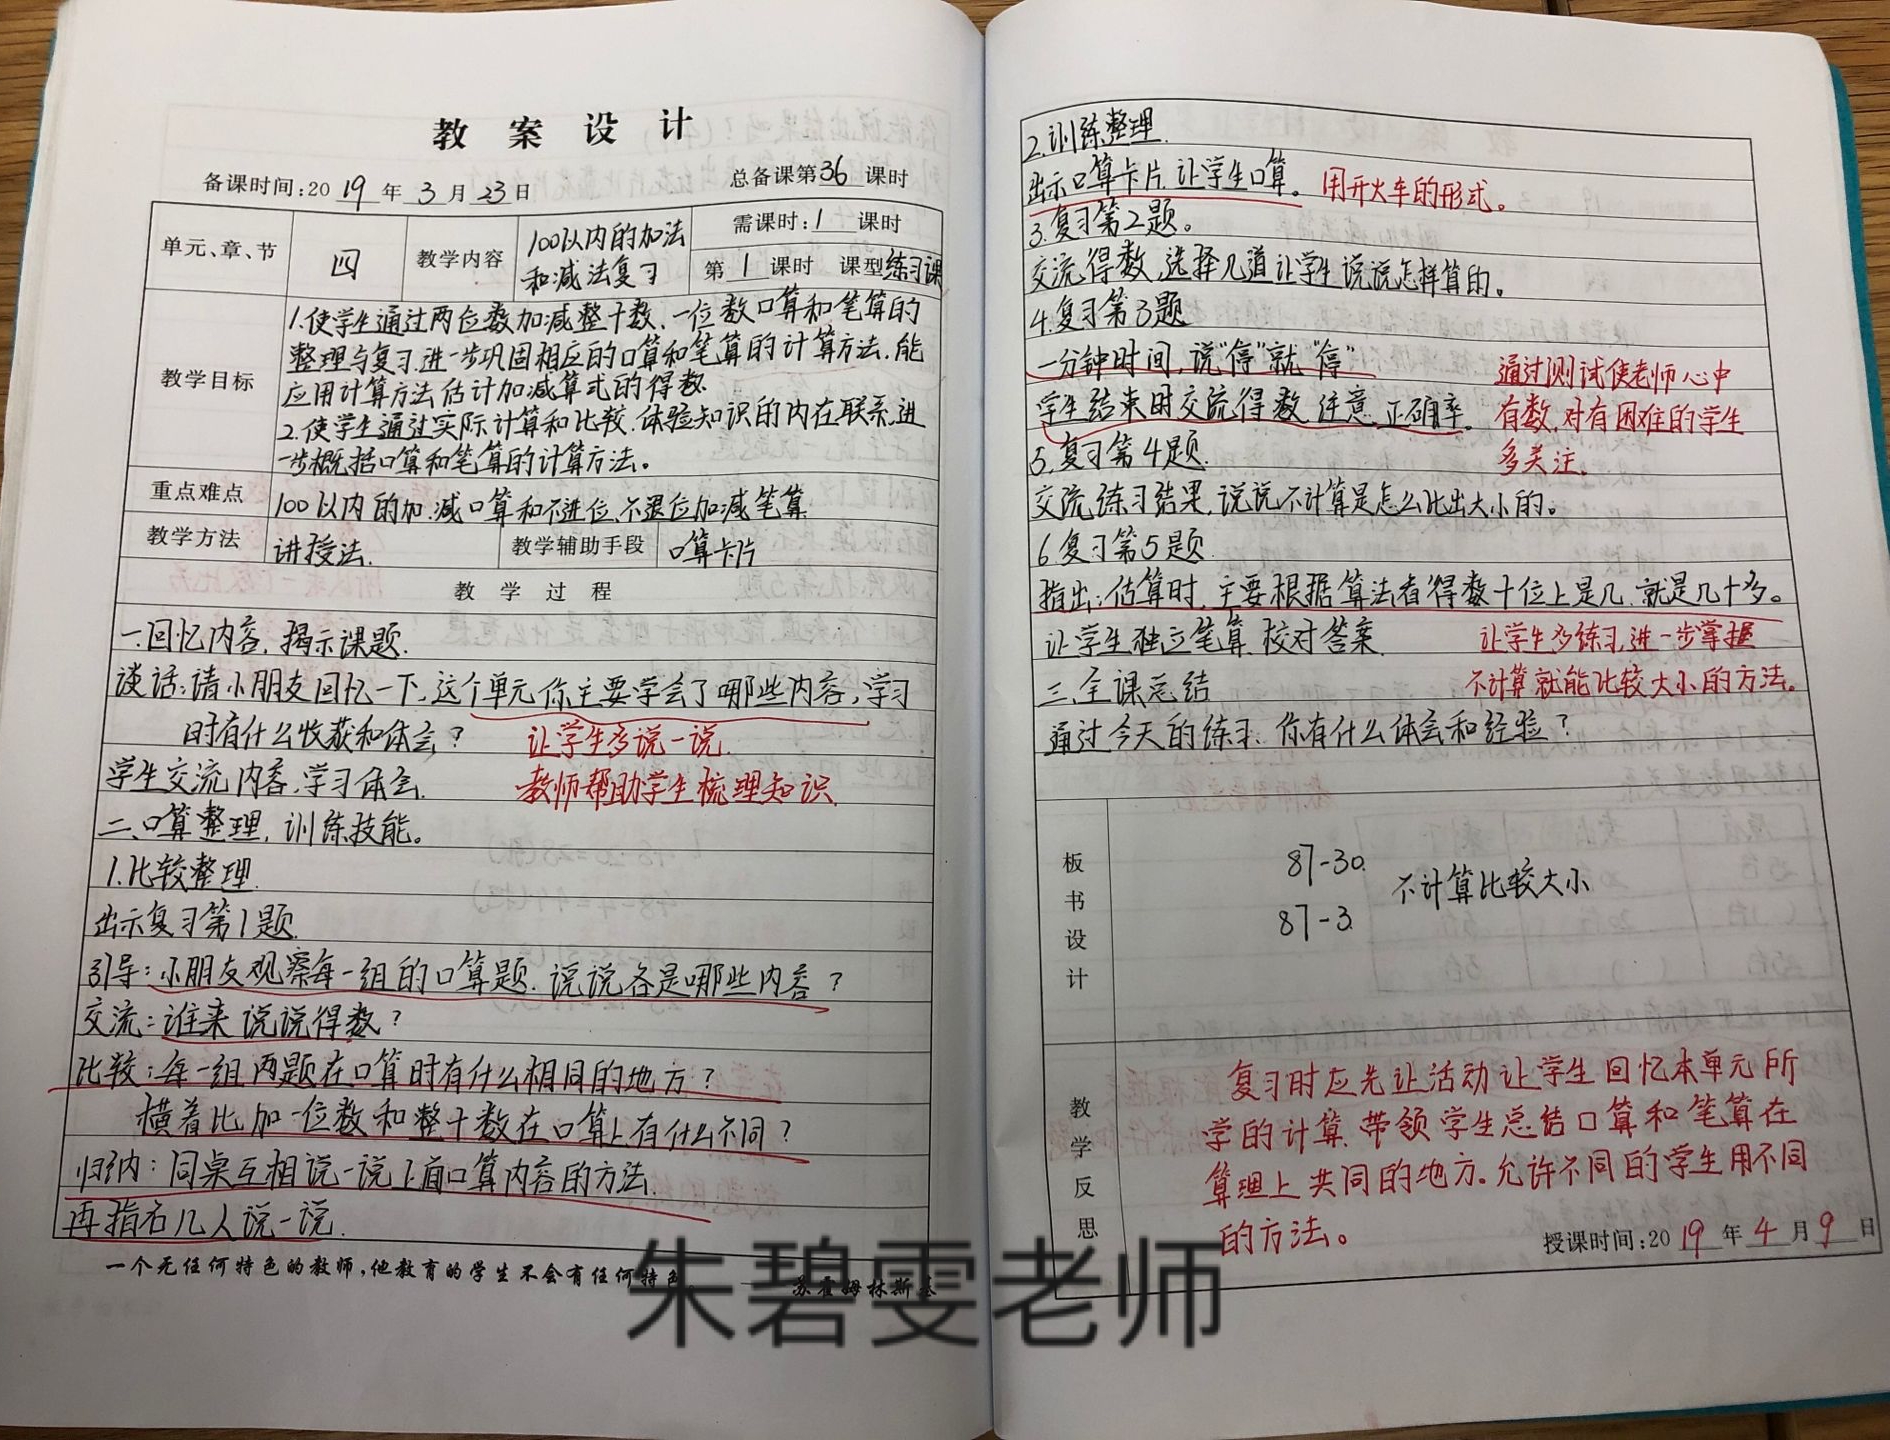 教案设计
备课时间:2019年3月23日 总备课第36课时
单元、章、节 四 教学内容 100以内的加法和减法复习 需课时:1课时
第1课时 课型练习课
教学目标
1.使学生通过两位数加减整十数、一位数口算和笔算的
整理与复习,进一步巩固相应的口算和笔算的计算方法.能
应用计算方法估计加减算式的得数.
2.使学生通过实际计算和比较.体验知识的内在联系,进
一步概括口算和笔算的计算方法。
重点难点 100以内的加、减口算和不进位、不退位加减笔算
教学方法 讲授法. 教学辅助手段 口算卡片
教学过程
一.回忆内容,揭示课题.
谈话:请小朋友回忆一下,这个单元你主要学会了哪些内容,学习
时有什么收获和体会? 让学生多说一说.
学生交流内容,学习体会. 教师帮助学生梳理知识.
二.口算整理,训练技能。
1.比较整理.
出示复习第1题.
引导:小朋友观察每一组的口算题.说说各是哪些内容?
交流:谁来说说得数?
比较:每一组两题在口算时有什么相同的地方?
横着比加一位数和整十数在口算上有什么不同?
归纳:同桌互相说一说上面口算内容的方法.
再指名几人说一说.
一个无任何特色的教师,他教育的学生不会有任何特色
苏霍姆林斯基
2.训练整理.
出示口算卡片.让学生口算。 用开火车的形式。
3.复习第2题。
交流得数,选择几道让学生说说怎样算的。
4.复习第3题
一分钟时间,说“停”就“停” 通过测试使老师心中
学生结束时交流得数,注意正确率。 有数,对有困难的学生
5.复习第4题. 多关注。
交流练习结果,说说不计算是怎么比出大小的。
6.复习第5题.
指出:估算时,主要根据算法看得数十位上是几、就是几十多。
让学生独立笔算,校对答案. 让学生多练习,进一步掌握
三.全课总结 不计算就能比较大小的方法。
通过今天的练习、你有什么体会和经验?
板书设计
87-30. 不计算比较大小
87-3.
教学反思
复习时应先让活动让学生回忆本单元所
学的计算,带领学生总结口算和笔算在
算理上共同的地方。允许不同的学生用不同
的方法。
授课时间:2019年4月9日
朱碧雯老师